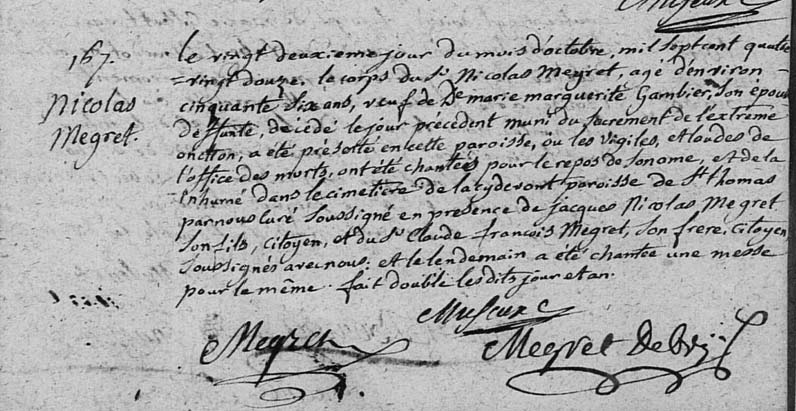 167.
Nicolas
Megret.
Le vingt deuxieme jour du mois d'octobre, mil sept cent quatre
=vingt douze. le corps du Sr Nicolas Megret, agé d'environ
cinquante six ans, veuf de De marie marguerite Gambier, son epouse
deffunte, décédé le jour précédent muni du sacrement de l'extreme
onction, a été présenté en cette paroisse, où les vigiles, et laudes de
l'office des morts, ont été chantées pour le repos de son ame, et de la
inhumé dans le cimetiere de la cydevant paroisse de St thomas
par nous curé soussigné en presence de jacques Nicolas Megret
son fils, Citoyen, et du Sr Claude françois Megret, son frere, Citoyen,
soussignés avec nous; et le lendemain a été chantée une messe
pour le même. fait double lesdits jour et an.
Megret
Megret